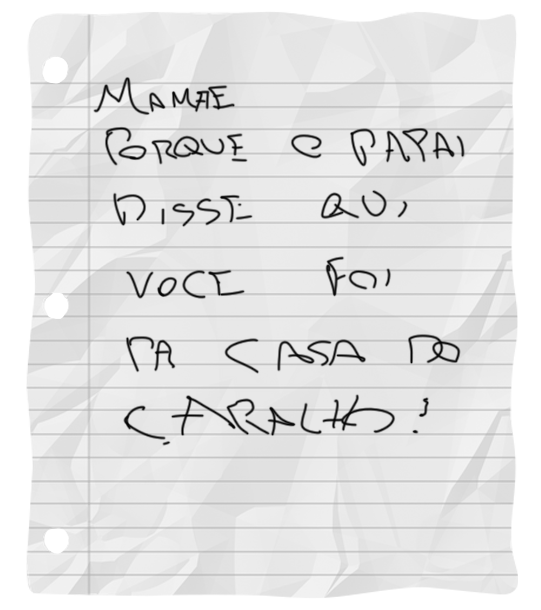 MAMAE
PORQUE O PAPAI
DISSE QUI
VOCE FOI
PA CASA DO
CARALHO?